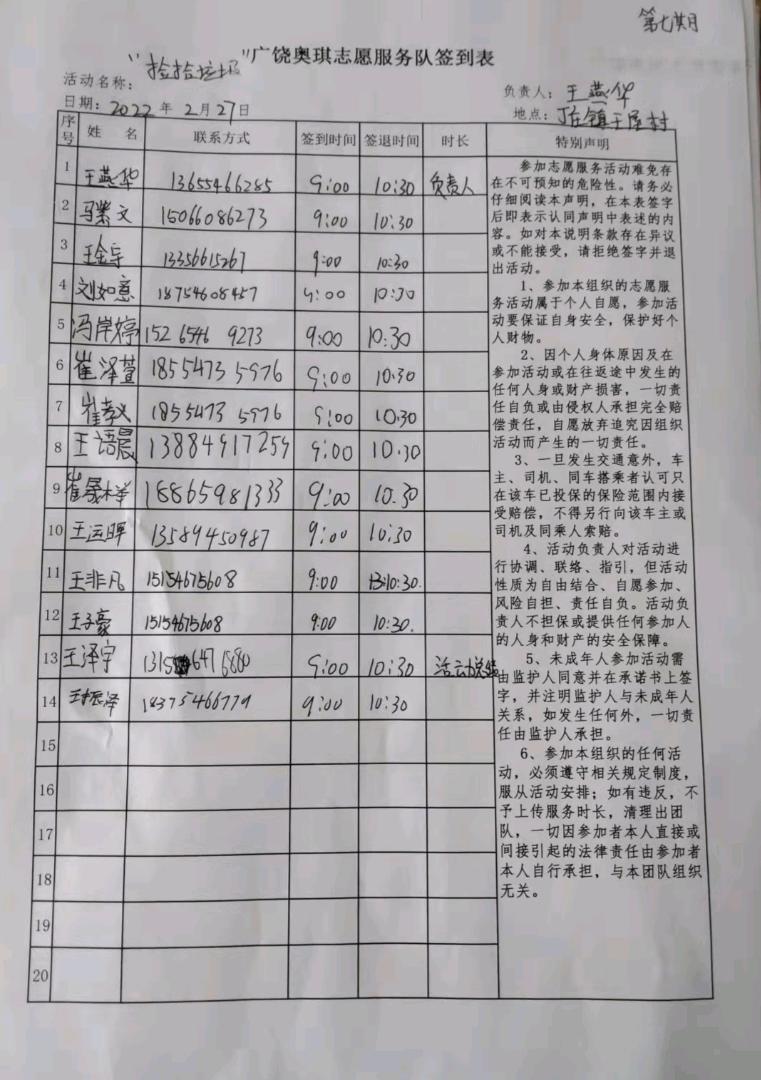 第七期
"捡拾垃圾"广饶奥琪志愿服务队签到表
活动名称:
负责人: 王燕华
日期: 2022 年 2 月 27 日
地点: 丁庄镇王屋村
序号 姓 名 联系方式 签到时间 签退时间 时长 特别声明
1 王燕华 13655466285 9:00 10:30 负责人
2 马繁文 15066086273 9:00 10:30
3 王金宇 13356615267 9:00 10:30
4 刘如意 18754608457 9:00 10:30
5 冯岸婷 152 6546 9273 9:00 10:30
6 崔泽萱 1855473 5976 9:00 10:30
7 崔孝义 1855473 5976 9:00 10:30
8 王语晨 13884917259 9:00 10:30
9 18865981333 9:00 10:30
10 王运晖 13589450987 9:00 10:30
11 王非凡 15154675608 9:00 10:30
12 王子豪 15154675608 9:00 10:30
13 王泽宇 9:00 10:30 活动总结
14 18375466779 9:00 10:30
15
16
17
18
19
20
参加志愿服务活动难免存
在不可预知的危险性。请务必
仔细阅读本声明，在本表签字
后即表示认同声明中表述的内
容。如对本说明条款存在异议
或不能接受，请拒绝签字并退
出活动。
1、参加本组织的志愿服
务活动属于个人自愿，参加活
动要保证自身安全，保护好个
人财物。
2、因个人身体原因及在
参加活动或在往返途中发生的
任何人身或财产损害，一切责
任自负或由侵权人承担完全赔
偿责任，自愿放弃追究因组织
活动而产生的一切责任。
3、一旦发生交通意外，车
主、司机、同车搭乘者认可只
在该车已投保的保险范围内接
受赔偿，不得另行向该车主或
司机及同乘人索赔。
4、活动负责人对活动进
行协调、联络、指引，但活动
性质为自由结合、自愿参加、
风险自担、责任自负。活动负
责人不担保或提供任何参加人
的人身和财产的安全保障。
5、未成年人参加活动需
由监护人同意并在承诺书上签
字，并注明监护人与未成年人
关系，如发生任何外，一切责
任由监护人承担。
6、参加本组织的任何活
动，必须遵守相关规定制度，
服从活动安排；如有违反，不
予上传服务时长，清理出团
队，一切因参加者本人直接或
间接引起的法律责任由参加者
本人自行承担，与本团队组织
无关。